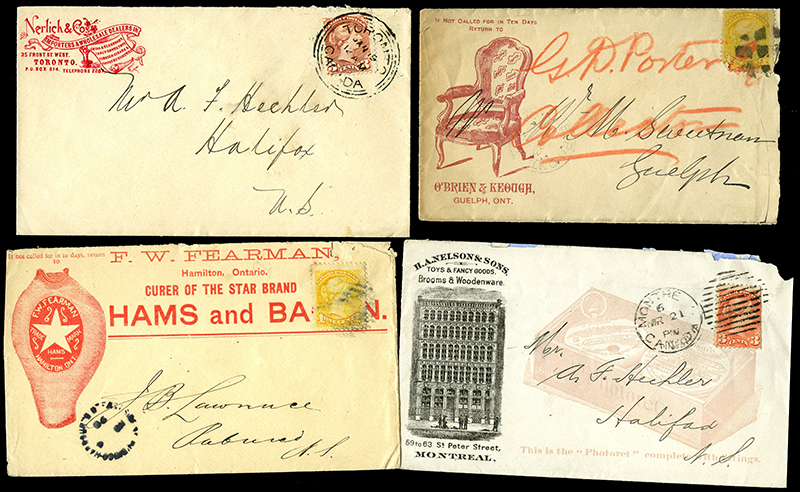 Nerlich & Co.
IMPORTERS & WHOLESALE DEALERS IN
35 FRONT ST. WEST,
TORONTO.
P.O. BOX 514. TELEPHONE
TORONTO
JAN
CANADA
Mr A. F. Hechler
Halifax
N.S.
IF NOT CALLED FOR IN TEN DAYS
RETURN TO
G D. Porter
Mr Wm M. Sweetnam
Guelph
O'BRIEN & KEOUGH,
GUELPH, ONT.
If not called for in 10 days, return
to
F. W. FEARMAN,
Hamilton, Ontario.
CURER OF THE STAR BRAND
HAMS and BACON.
F.W. FEARMAN
TRADE MARK
HAMS
HAMILTON, ONT.
J. B. Lawrence
N.S.
H.A. NELSON & SONS,
TOYS & FANCY GOODS,
Brooms & Woodenware.
59 to 63 St Peter Street,
MONTREAL.
MONTRE
6
MR 21
PM
CANADA
3 CENTS 3
Mr.
A. F. Hechler
Halifax
N.S.
This is the "Photoret" complete with fittings.